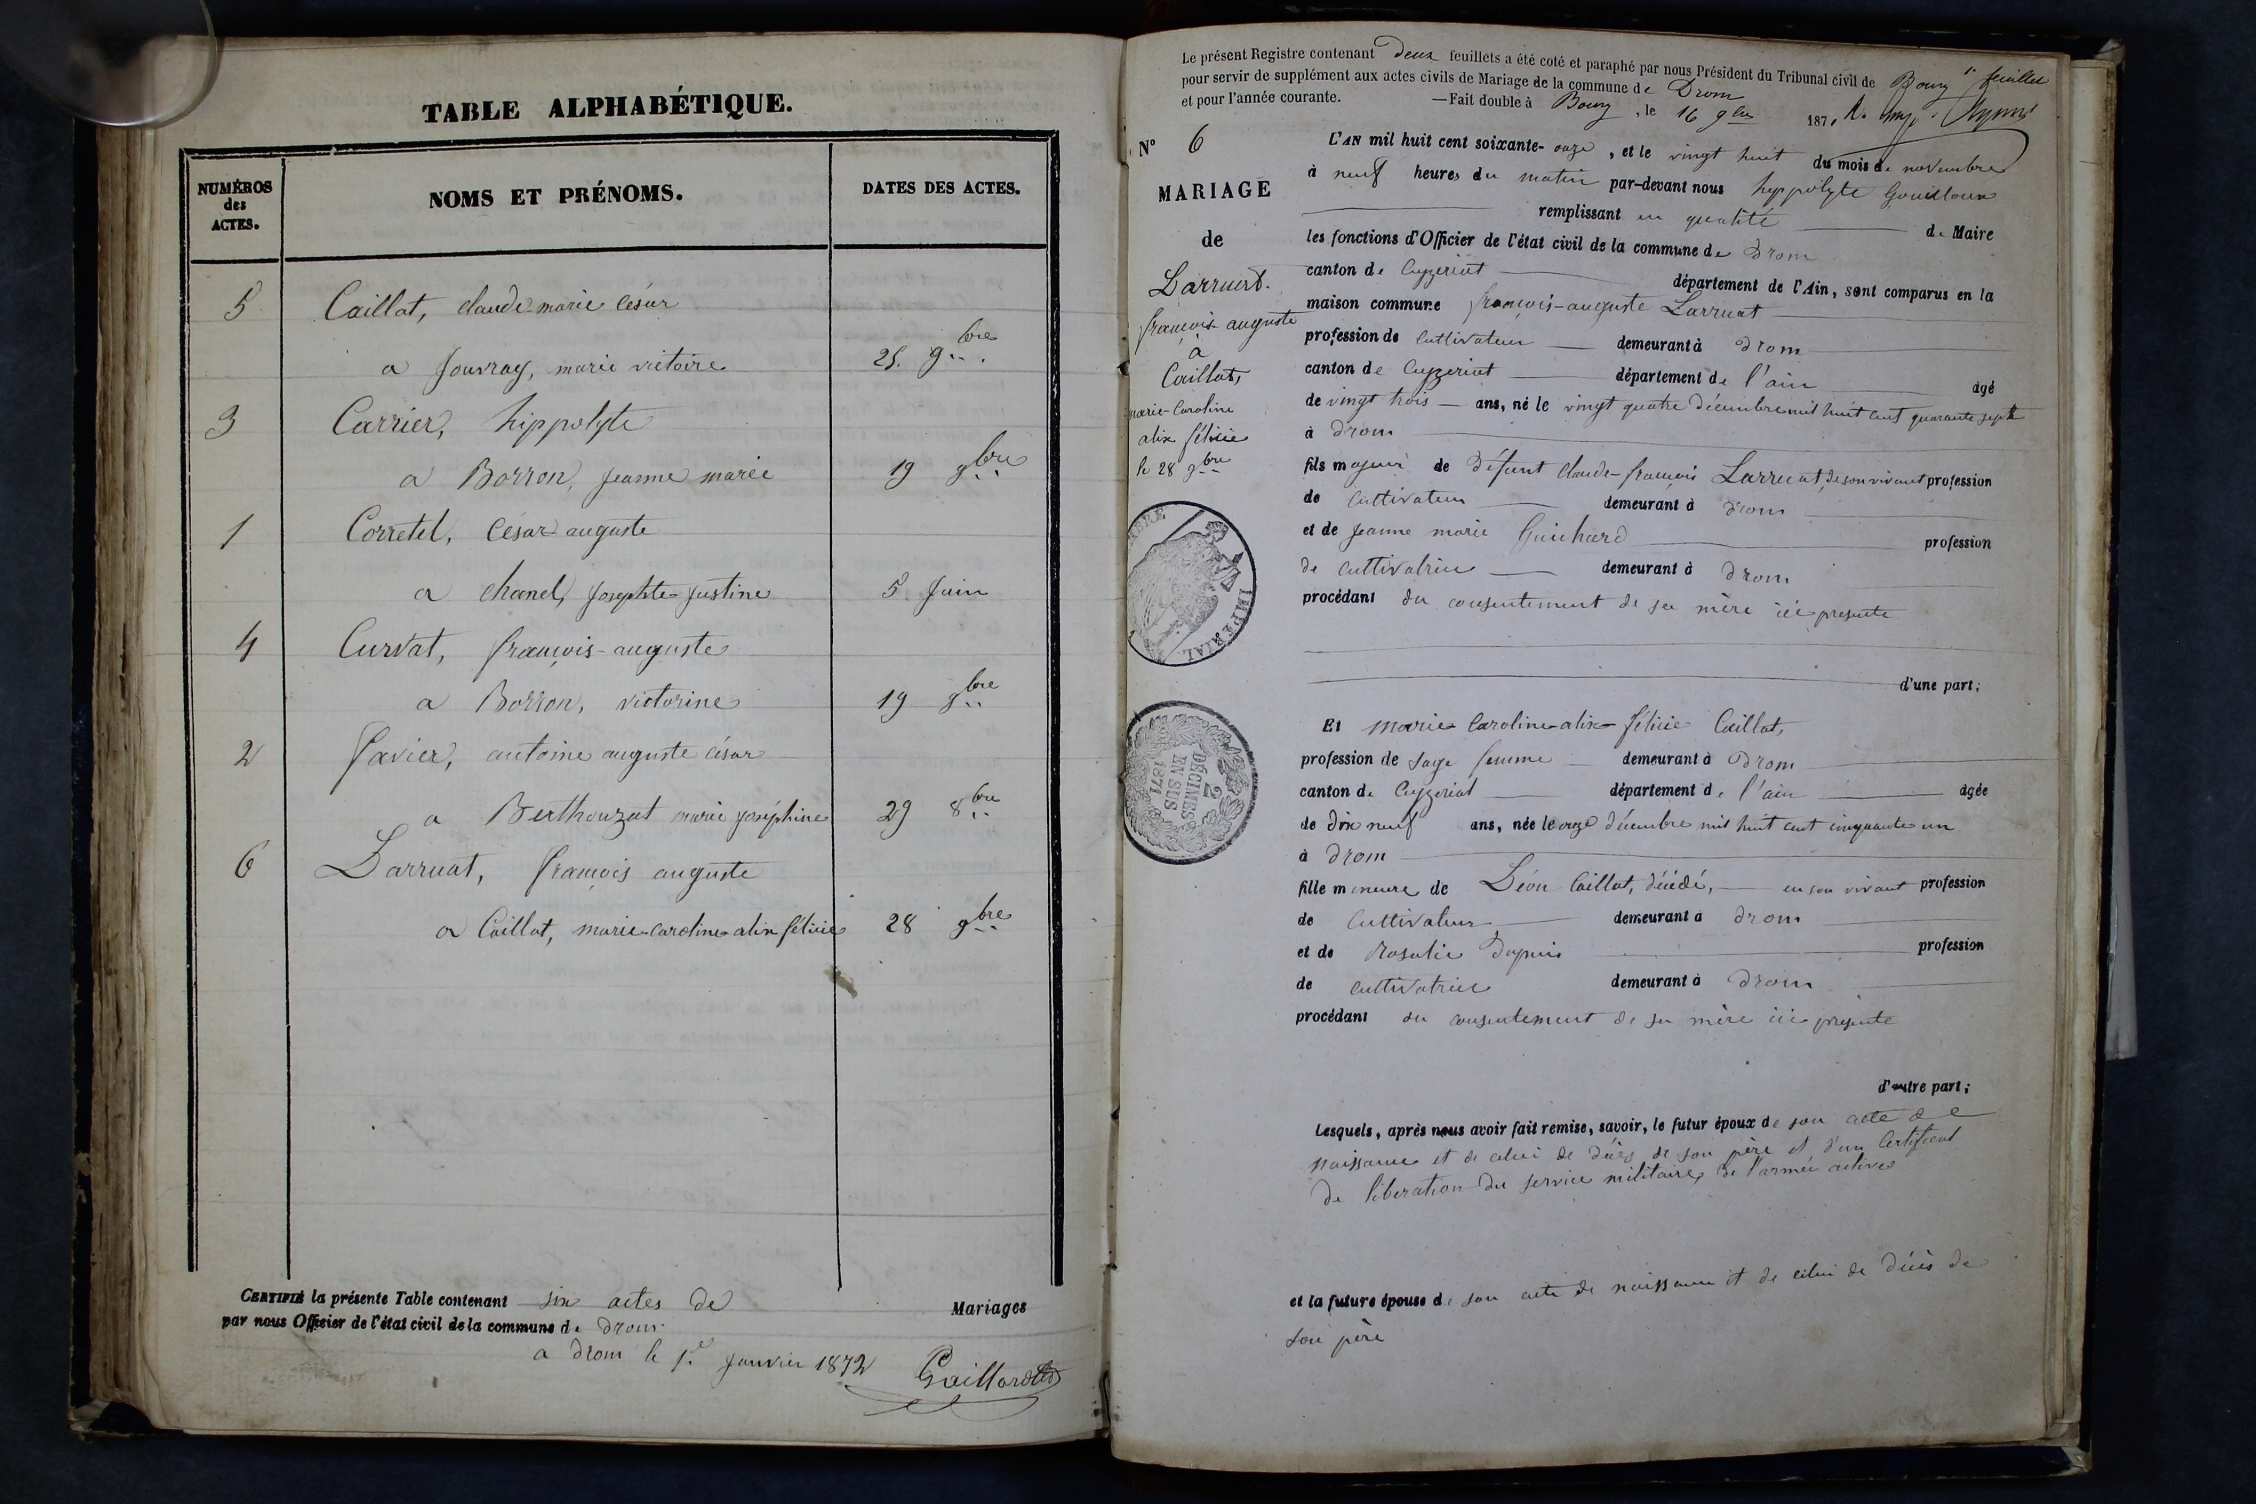 TABLE ALPHABÉTIQUE.
NUMÉROS
des
ACTES.
NOMS ET PRÉNOMS.
DATES DES ACTES.
5 Caillat, claude-marie césar
a Jouvray, marie victoire 25. 9bre
3 Carrier, hippolyte
a Borron, jeanne marie 19 9bre
1 Corretel, césar auguste
a chanel, josephte justine 5 Juin
4 Curvat, françois-auguste
a Borron, victorine 19 9bre
2 Favier, antoine auguste césar
a Berthouzat marie joséphine 29 8bre
6 Larruat, françois auguste
a Caillat, marie-caroline alix félicie 28 9bre
CERTIFIÉ la présente Table contenant six actes de Mariages
par nous Officier de l'état civil de la commune de drom
a drom le 1er janvier 1872
Le présent Registre contenant Deux feuillets a été coté et paraphé par nous Président du Tribunal civil de Bourg
1er feuillet
pour servir de supplément aux actes civils de Mariage de la commune de Drom
et pour l'année courante. —Fait double à Bourg, le 16 9bre 1871
N° 6
MARIAGE
de
Larruat.
françois auguste
à
Caillat,
marie-caroline
alix félicie
le 28 9bre
IMPERIAL
2
DÉCIMES
EN SUS
1871
L'AN mil huit cent soixante-onze, et le vingt huit du mois de novembre
à neuf heures du matin par-devant nous hyppolyte
remplissant en qualité de Maire
les fonctions d'Officier de l'état civil de la commune de Drom
canton de Ceyzeriat département de l'Ain, sont comparus en la
maison commune françois-auguste Larruat
profession de cultivateur demeurant à Drom
canton de Ceyzeriat département de l'ain âgé
de vingt trois ans, né le vingt quatre décembre mil huit cent quarante sept
à Drom
fils majeur de défunt claude-françois Larruat, de son vivant profession
de cultivateur demeurant à Drom
et de jeanne marie Guichard profession
de cultivatrice demeurant à Drom
procédant du consentement de sa mère ici presente
d'une part;
Et marie caroline alix félicie Caillat,
profession de sage femme demeurant à Drom
canton de Ceyzeriat département de l'ain âgée
de dix neuf ans, née le onze décembre mil huit cent cinquante un
à Drom
fille mineure de Léon Caillat, décédé, en son vivant profession
de cultivateur demeurant à Drom
et de Rosalie Dupuis profession
de cultivatrice demeurant à Drom
procédant du consentement de sa mère ici presente
d'autre part;
Lesquels, après nous avoir fait remise, savoir, le futur époux de son acte de
naissance et de celui de décès de son père et d'un certificat
de liberation du service militaire, de l'armée active
et la future épouse de son acte de naissance et de celui de décès de
son père